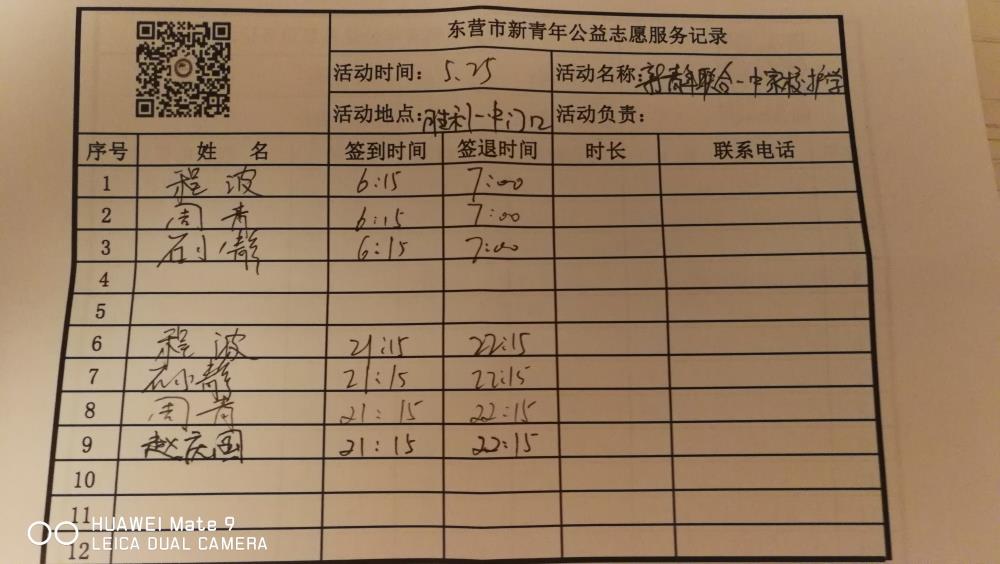 东营市新青年公益志愿服务记录
活动时间: 5.25 活动名称:新青年联合一中家校护学
活动地点:胜利一中门口 活动负责:
序号 姓 名 签到时间 签退时间 时长 联系电话
1 程波 6:15 7:00
2 周青 6:15 7:00
3 石小静 6:15 7:00
4
5
6 程波 21:15 22:15
7 石小静 21:15 22:15
8 周青 21:15 22:15
9 赵庆国 21:15 22:15
10
11
12
HUAWEI Mate 9
LEICA DUAL CAMERA